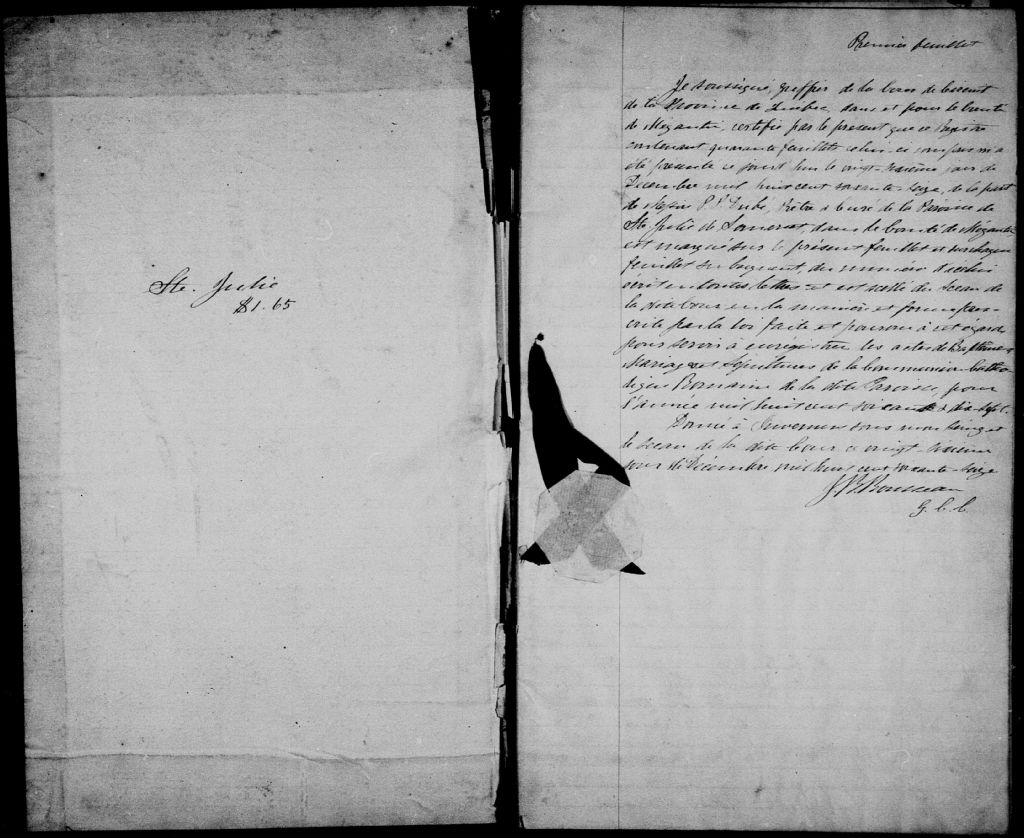 Ste. Julie
$1.65
Premier feuillet
Je soussigné, greffier de la Cour de Circuit
de la Province de Québec, dans et pour le Comté
de Mégantic, certifie par le présent que ce Registre
contenant quarante feuillets celui-ci compris m'a
été présenté ce jourd'hui le vingt-sixième jour de
Décembre mil huit cent soixante-seize, de la part
de Messire Dubé, Prêtre & Curé de la Paroisse de
Ste Julie de Somerset, dans le Comté de Mégantic,
est marqué sur le présent feuillet et sur chaque
feuillet subséquent, du numéro d'icelui
écrit en toutes lettres et est scellé du sceau de
la dite Cour en la manière et forme pres-
crite par la loi faite et pourvue à cet égard
pour servir à enrégistrer les actes de Baptêmes
Mariages et Sépultures de la Communion Catho-
lique Romaine de la dite Paroisse, pour
l'année mil huit cent soixante & dix-sept.
Donné à Inverness sous mon seing et
le sceau de la dite Cour ce vingt-sixième
jour de Décembre mil huit cent soixante-seize
Rousseau
G. C. C.